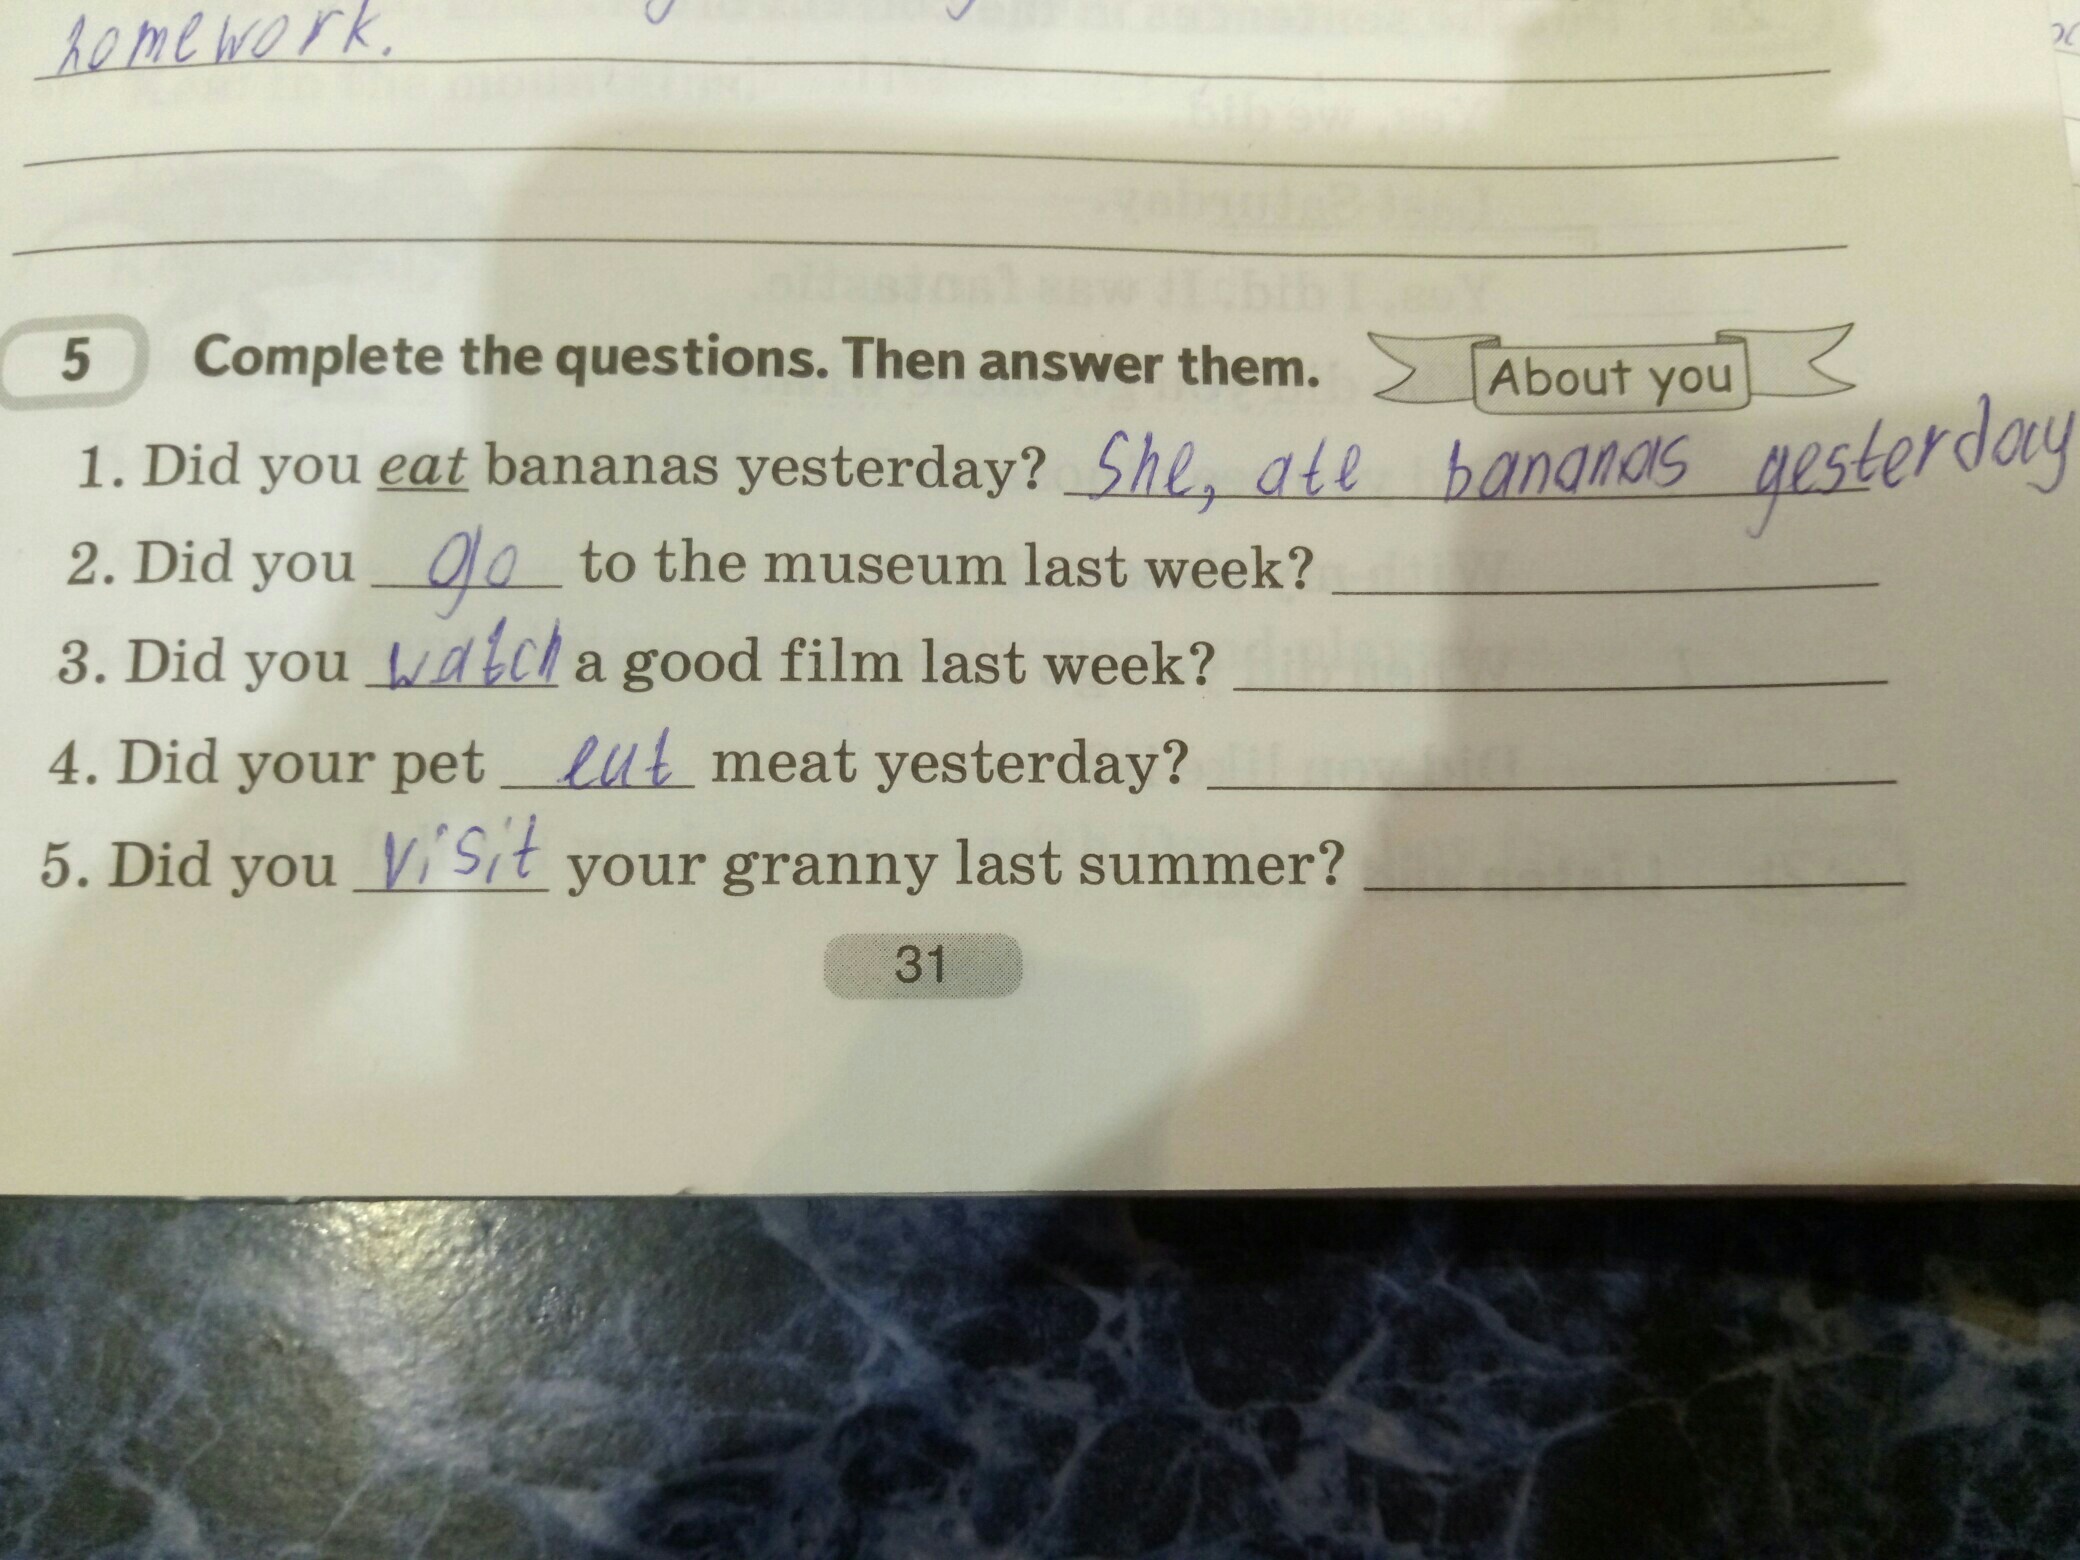 homework.
5 Complete the questions. Then answer them. About you
1. Did you eat bananas yesterday? She, ate bananas yesterday
2. Did you go to the museum last week?
3. Did you watch a good film last week?
4. Did your pet eat meat yesterday?
5. Did you visit your granny last summer?
31